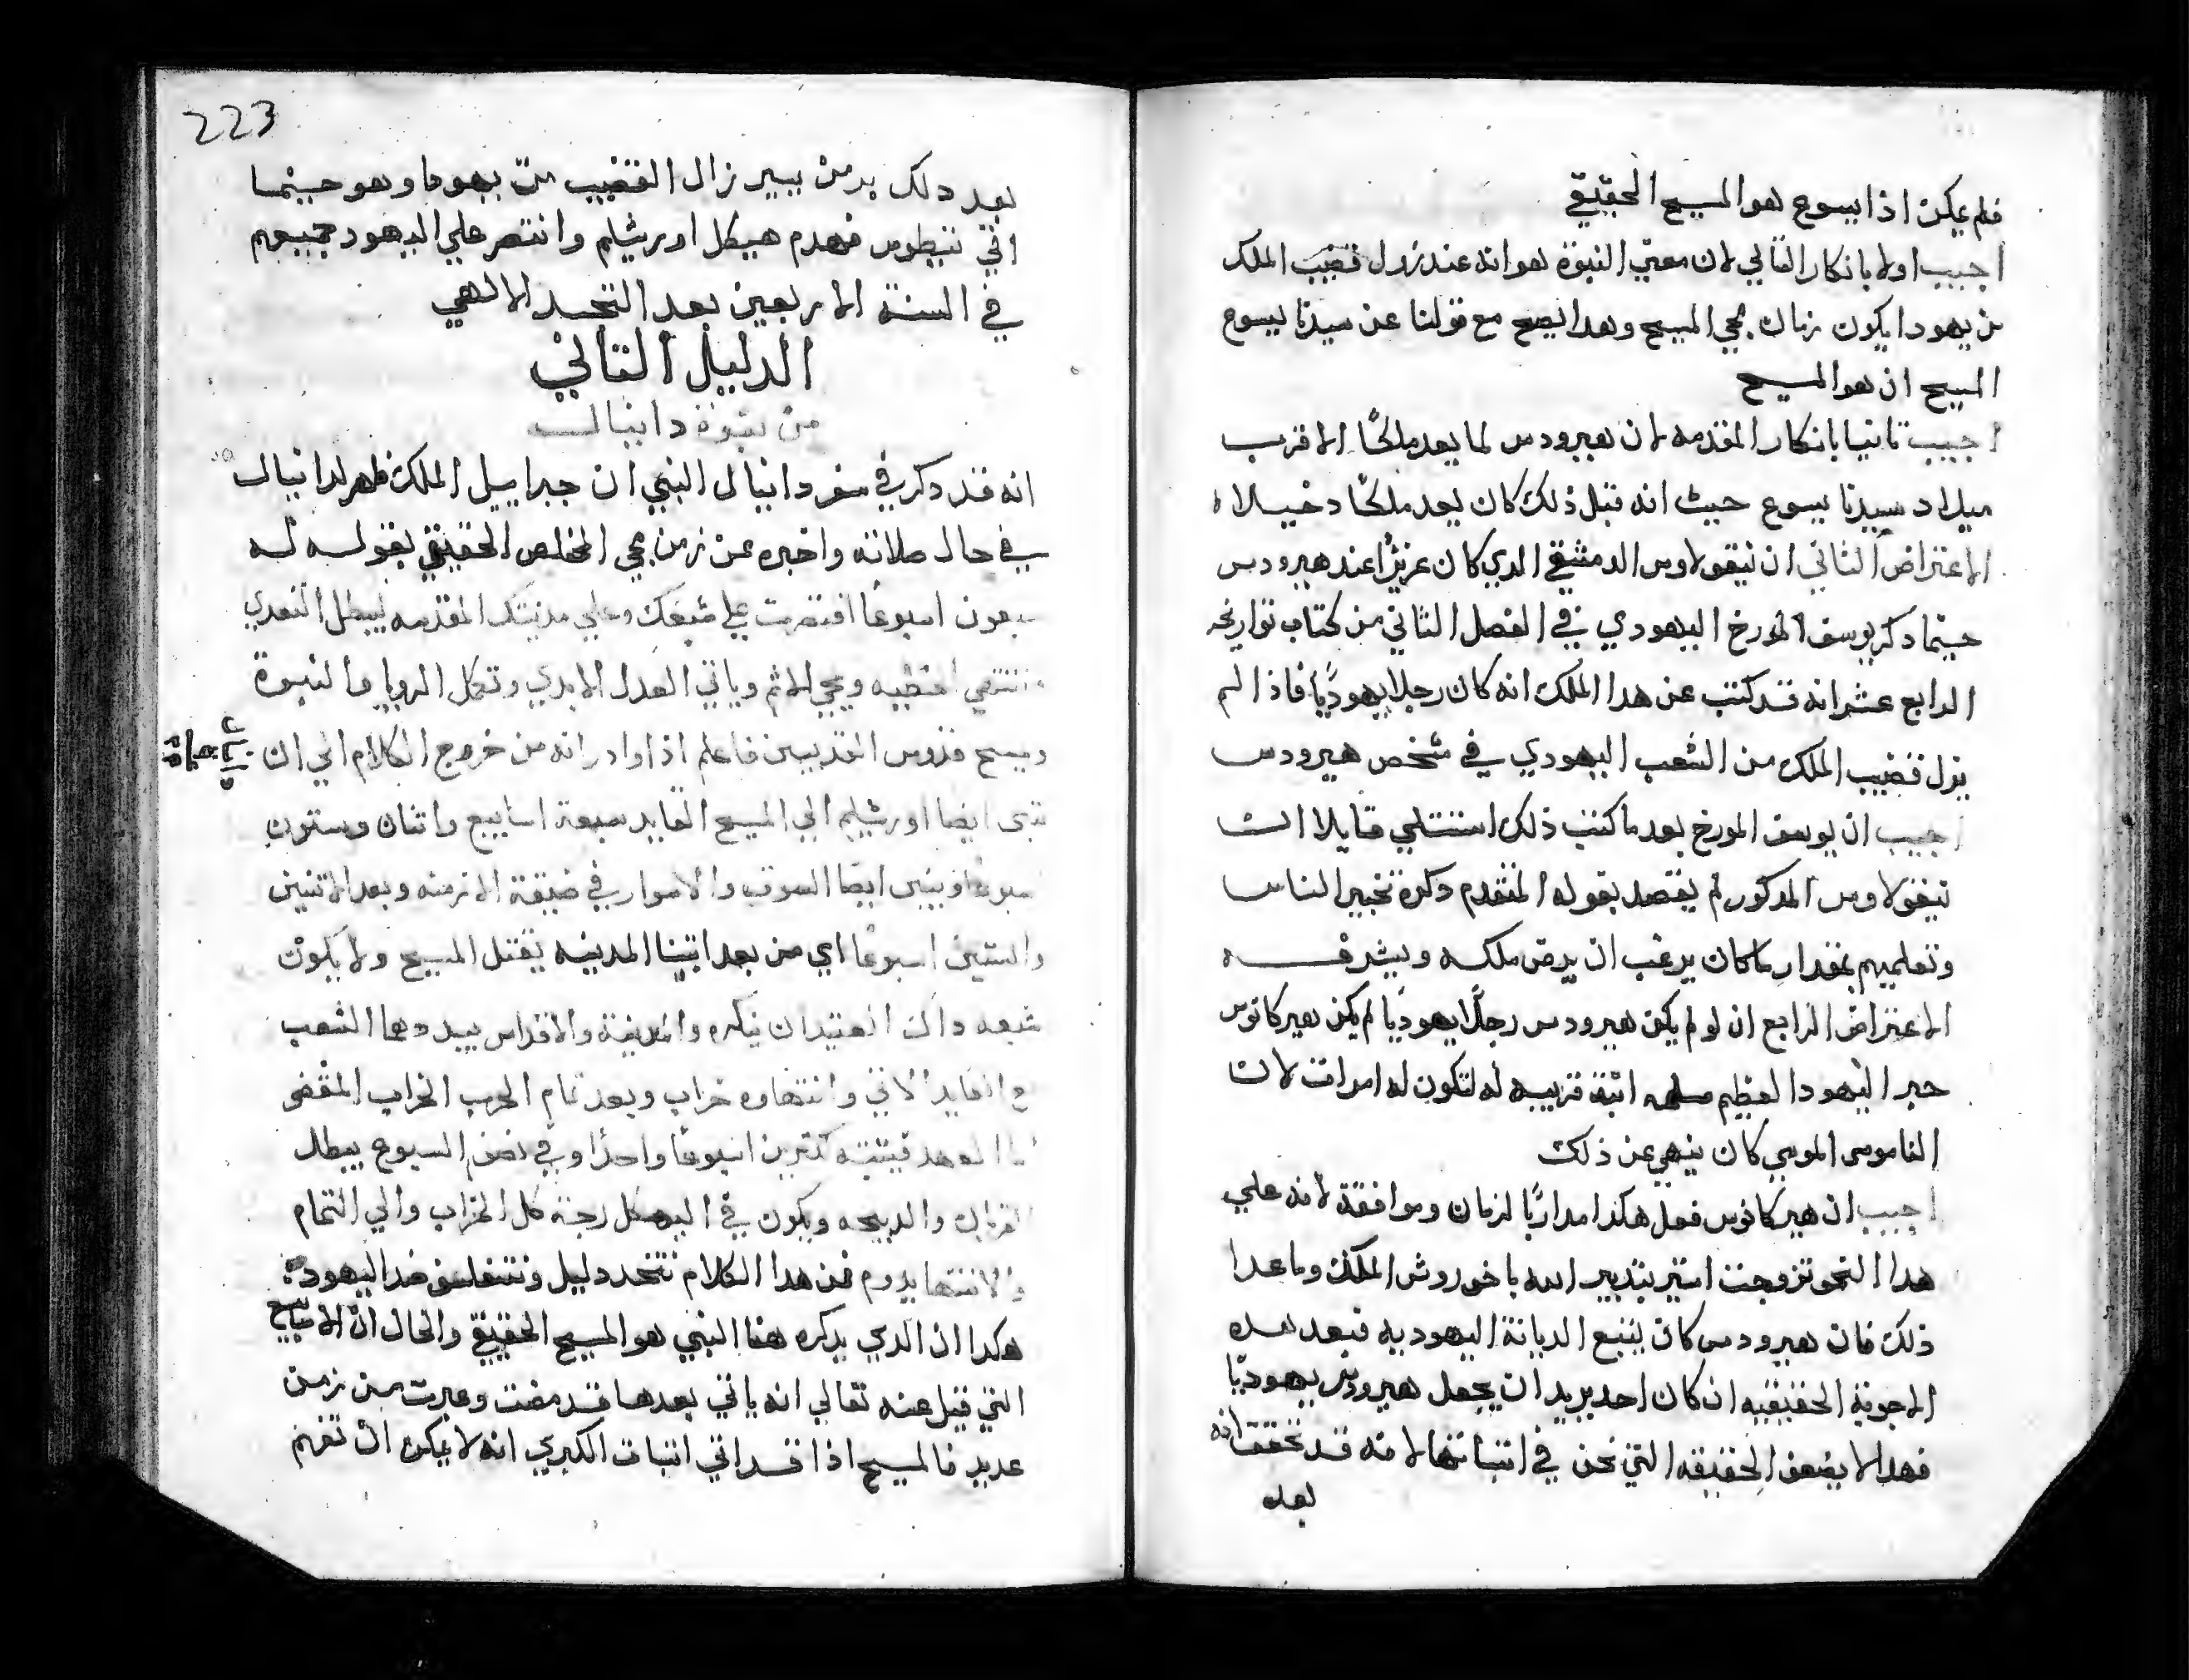 فلم يمكن اذا يسوع هو المسيح الحقيقي
اجيب اولا بانكار التالي لان معني النبوة هو انه عند زول قضيب الملك
من يهودا يكون زمان مجي المسيح وهدا يصح مع قولنا عن سيدنا يسوع
المسيح ان هو المسيح
اجيب ثانيا بانكار المقدمه لان هيرودس لما يعد ملكًا الا قرب
ميلاد سيدنا يسوع حيث انه قبل ذلك كان يعد ملكًا دخيلا
الاعتراض الثاني ان نيقولاوس الدمشقي الدي كان عزيزًا عند هيرودس
حيثما دكر يوسف المورخ اليهودي في الفصل الثاني من كتاب تواريخه
الرابع عشر انه قد كتب عن هدا الملك انه كان رجلا يهوديًا فاذا لم
يزل قضيب الملك من الشعب اليهودي في شخص هيرودس
اجيب ان يوسف المورخ بعد ما كتب ذلك استتلي قايلا ان
نيقولاوس المدكور لم يقصد بقوله المتقدم دكره تخبير الناس
وتعليمهم بمقدار ما كان يرغب ان يرض ملكه ويشرفه
الاعتراض الرابع ان لو لم يكن هيرودس رجلًا يهوديًا لم يكن هيركانوس
حبر اليهود العظيم ابنة قريبه له لتكون له امراة لان
الناموس الموسي كان ينهي عن ذلك
اجيب ان هيركانوس فعل هكدا مداريًا لزمان وموافقة لانه علي
هدا النحو تزوجت استير بتدبير الله باخوروش الملك وما عدا
ذلك فان هيرودس كان يتبع الديانة اليهوديه فبعد هده
الاجوبة الحقيقيه ان كان احد يريد ان يجعل هيرودس يهوديًا
فهدا لا يضعف الحقيقه التي نحن في اثباتها لانه قد تحقق انه
بعد
223
بعد دلك بزمن يسير زال القضيب من يهودا وهو حينما
اتي تيطوس فهدم هيكل اورشليم وانتصر علي اليهود جميعهم
في السنة الاربعين بعد التجسد الالهي
الدليل الثاني
من نبوة دانيال
انه قد دكر في سفر دانيال النبي ان جبراييل الملك ظهر لدانيال
في حال صلاته واخبره عن زمن مجي المخلص الحقيقي بقوله له
سبعون اسبوعا اقتصرت علي شعبك وعلي مدينتك المقدسه ليبطل التعدي
وتنتهي الخطيه ويمحي الاثم وياتي العدل الابدي وتكمل الرويا والنبوة
ويمسح قدوس القديسين فاعلم اذا وادر انه من خروج الكلام الي ان
تبنى ايضا اورشليم الي المسيح القايد سبعة اسابيع واثنان وستون
اسبوعًا ويبنى ايضا السوق والاسوار في ضيقة الازمنه وبعد الاثنين
والستين اسبوعًا اي من بعد ابتنا المدينه يقتل المسيح ولا يكون
شعبه داك العتيد ان ينكره والمدينة والاقداس يبددها الشعب
مع القايد الاتي وانتهاوه خراب وبعد تمام الحرب الخراب المقضى
العهد كثيرين اسبوعًا واحدًا وفي نصف السبوع يبطل
القربان والدبيحه ويكون في الهيكل رجسة كل الخراب والي التمام
والانتها يدوم فمن هدا الكلام نتخد دليل ونتفلسف ضد اليهود
هكدا ان الدي يدكره هنا النبي هو المسيح الحقيقي والحال ان الاسابيع
التي قيل عنه تعالي انه ياتي بعدها قد مضت وعبرت من زمن
عديد فالمسيح اذا قد اتي اثبات الكبري انه لا يمكن ان تفهم